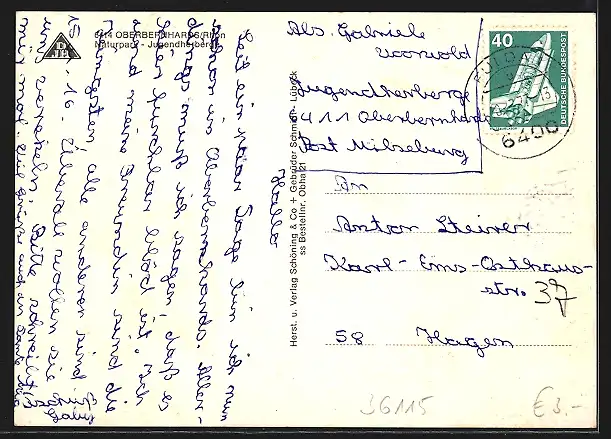 6414 OBERBERNHARDS/Rhön
Naturpark - Jugendherberge
Hallo
Seit ein paar Tage bin ich nun
schon in Oberbernhards. Aller-
dings muß ich sagen, daß es
hier furchtbar blöd ist. Ich
und meine Freundin sind die
jüngsten, alle anderen sind
15 - 16. Überall wollen sie
uns Bitte schreibt
mir mal. Viele Grüße auch an Tante
Gaby
Herst. u. Verlag Schöning & Co + Gebrüder Schmidt, Lübeck
Bestellnr. Obha 21
Abs. Gabriele
Voswold
Jugendherberge
6411 Oberbernhards
Post Milseburg
40
DEUTSCHE BUNDESPOST
FULDA
6400
An
Anton Steirer
Karl-Ems-Osthaus-
str. 37
58 Hagen
J6115
€3.-